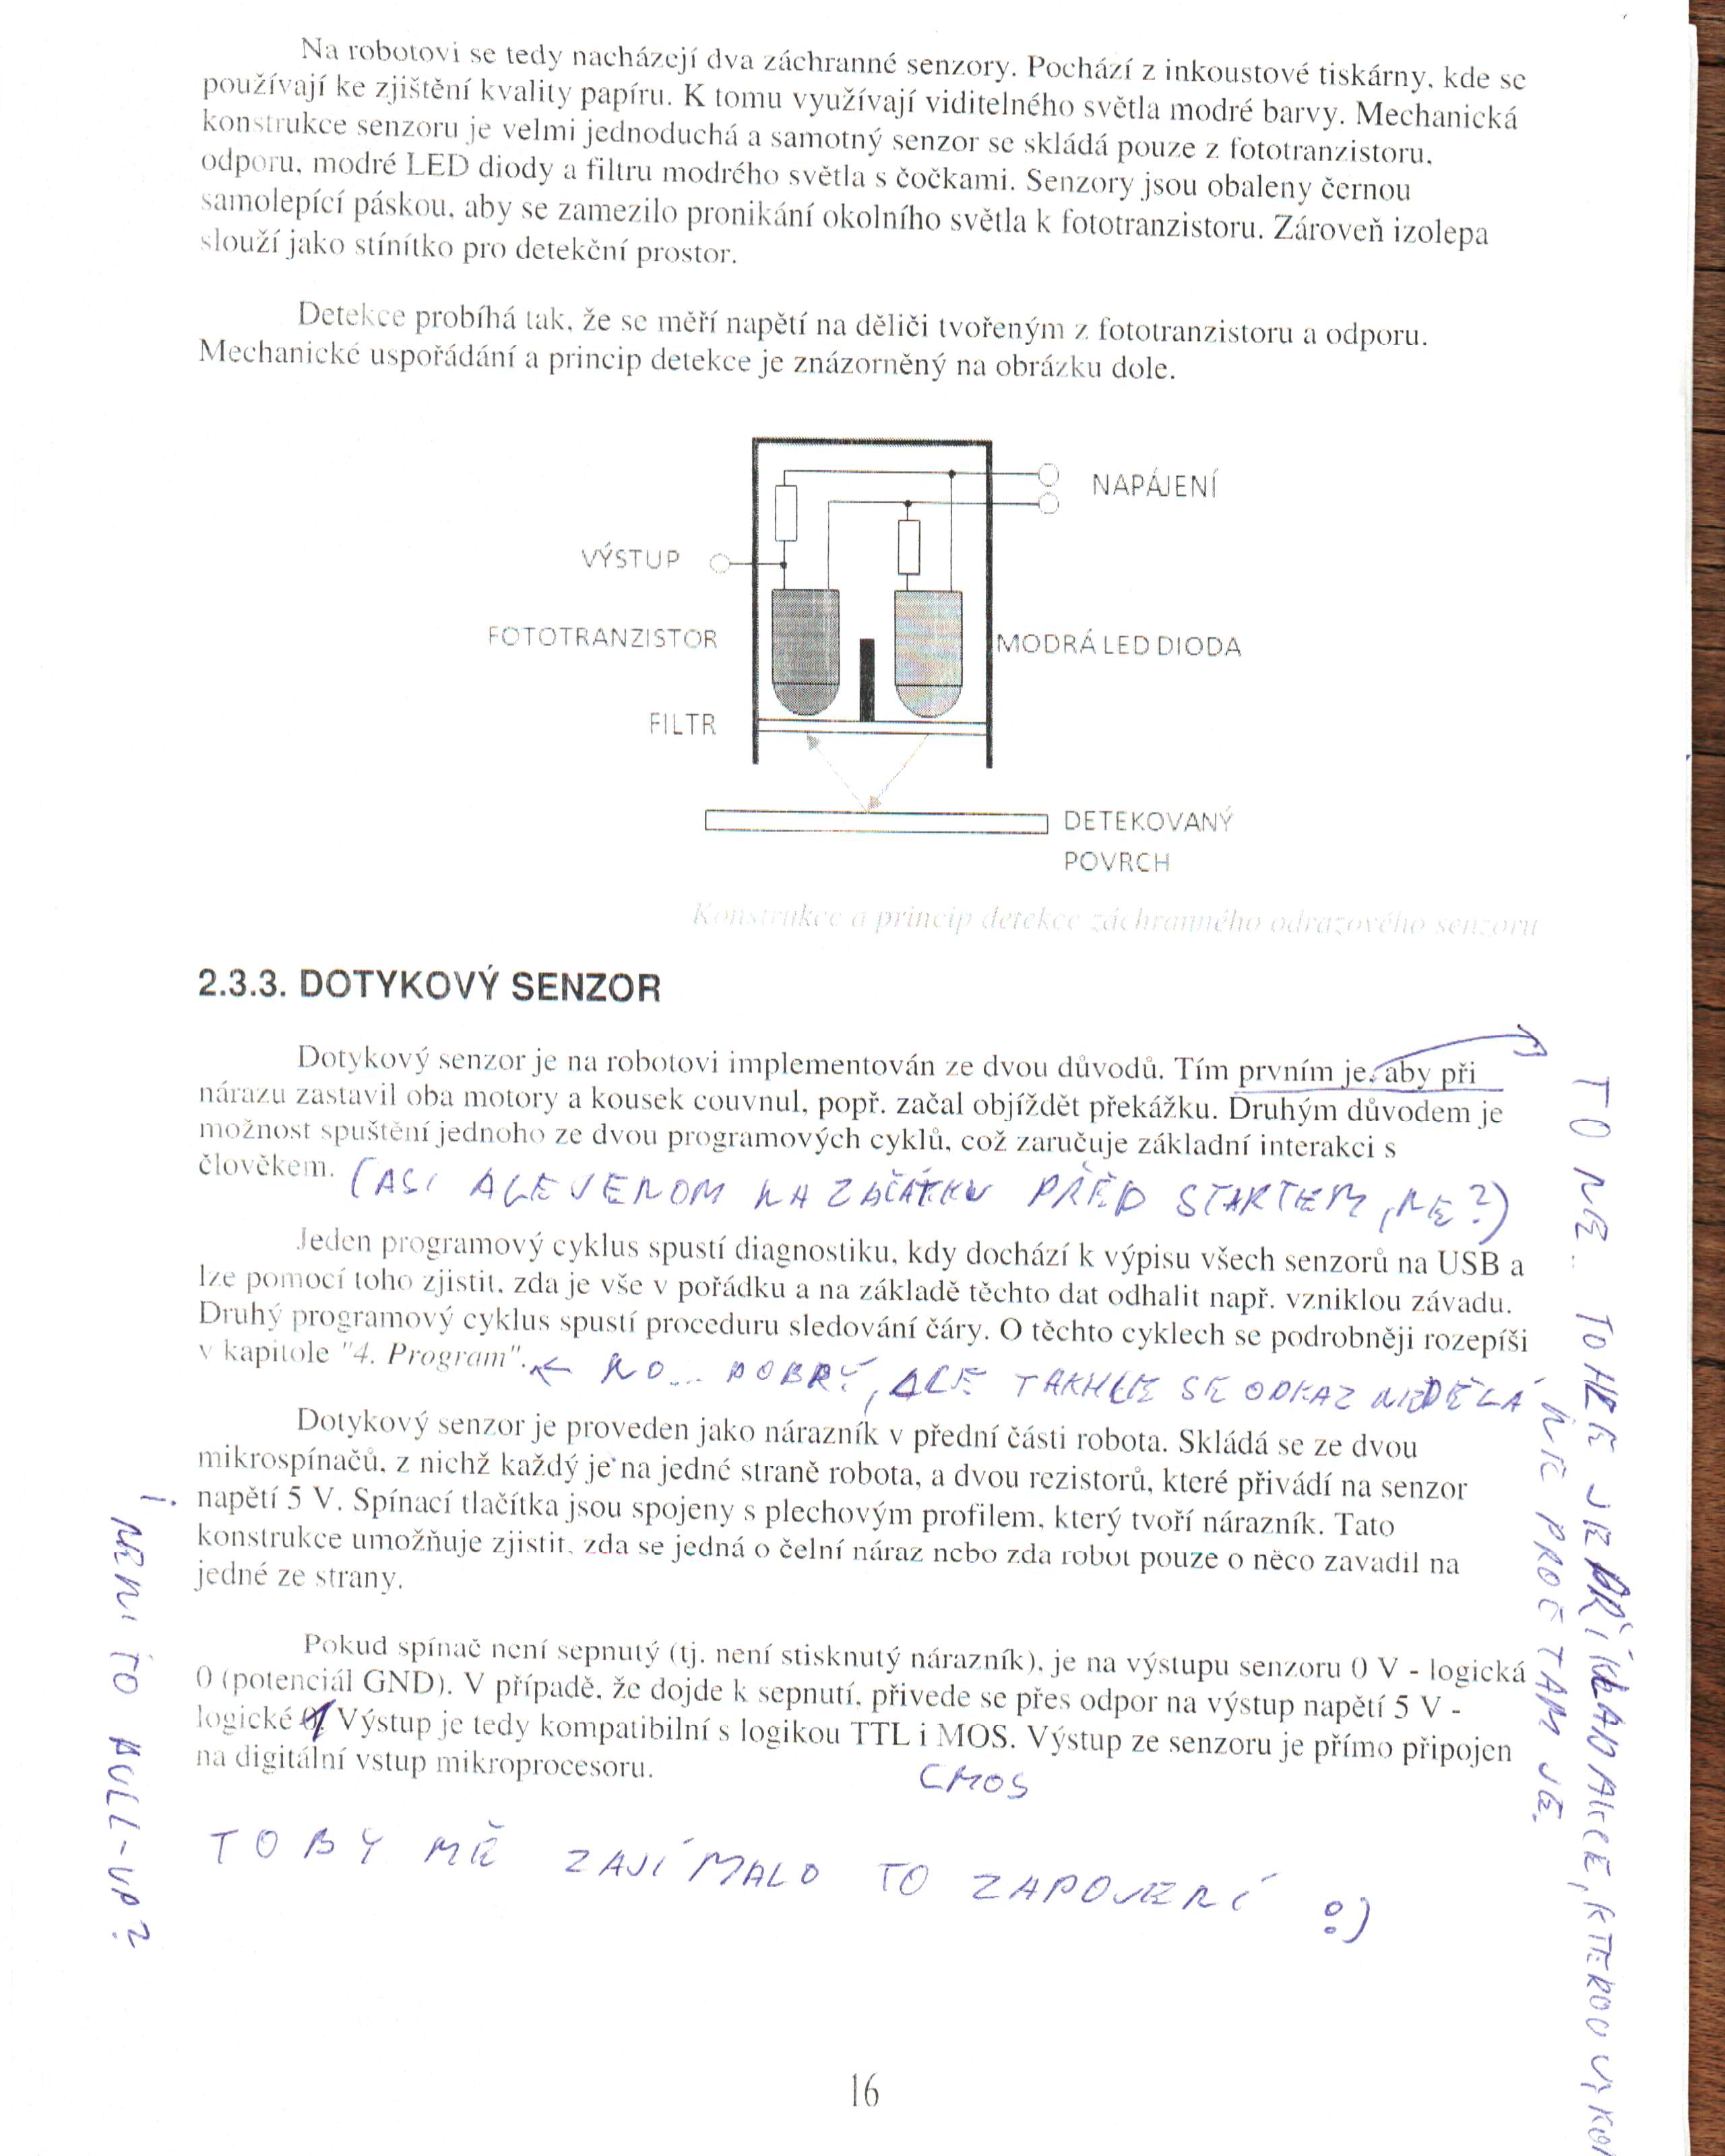 Na robotovi se tedy nacházejí dva záchranné senzory. Pochází z inkoustové tiskárny, kde se
používají ke zjištění kvality papíru. K tomu využívají viditelného světla modré barvy. Mechanická
konstrukce senzoru je velmi jednoduchá a samotný senzor se skládá pouze z fototranzistoru,
odporu, modré LED diody a filtru modrého světla s čočkami. Senzory jsou obaleny černou
samolepící páskou, aby se zamezilo pronikání okolního světla k fototranzistoru. Zároveň izolepa
slouží jako stínítko pro detekční prostor.
Detekce probíhá tak, že se měří napětí na děliči tvořeným z fototranzistoru a odporu.
Mechanické uspořádání a princip detekce je znázorněný na obrázku dole.
NAPÁJENÍ
VÝSTUP
FOTOTRANZISTOR
MODRÁ LED DIODA
FILTR
DETEKOVANÝ
POVRCH
Konstrukce a princip detekce záchranného odrazového senzoru
2.3.3. DOTYKOVÝ SENZOR
Dotykový senzor je na robotovi implementován ze dvou důvodů. Tím prvním je, aby při
nárazu zastavil oba motory a kousek couvnul, popř. začal objíždět překážku. Druhým důvodem je
možnost spuštění jednoho ze dvou programových cyklů, což zaručuje základní interakci s
člověkem. (ASI ALE JENOM NA ZAČÁTKU PŘED STARTEM, NE?)
Jeden programový cyklus spustí diagnostiku, kdy dochází k výpisu všech senzorů na USB a
lze pomocí toho zjistit, zda je vše v pořádku a na základě těchto dat odhalit např. vzniklou závadu.
Druhý programový cyklus spustí proceduru sledování čáry. O těchto cyklech se podrobněji rozepíši
v kapitole "4. Program". ← NO... DOBRÝ, ALE TAKHLE SE ODKAZ NEDĚLÁ
Dotykový senzor je proveden jako nárazník v přední části robota. Skládá se ze dvou
mikrospínačů, z nichž každý je na jedné straně robota, a dvou rezistorů, které přivádí na senzor
napětí 5 V. Spínací tlačítka jsou spojeny s plechovým profilem, který tvoří nárazník. Tato
konstrukce umožňuje zjistit, zda se jedná o čelní náraz nebo zda robot pouze o něco zavadil na
jedné ze strany.
Pokud spínač není sepnutý (tj. není stisknutý nárazník), je na výstupu senzoru 0 V - logická
0 (potenciál GND). V případě, že dojde k sepnutí, přivede se přes odpor na výstup napětí 5 V -
logické 1 Výstup je tedy kompatibilní s logikou TTL i MOS. Výstup ze senzoru je přímo připojen
na digitální vstup mikroprocesoru.
CMOS
TO BY MĚ ZAJÍMALO TO ZAPOJENÍ :)
NENÍ TO PULL-UP?
TO NE. TOHLE JE PŘÍKLAD AKCE, KTEROU
NE PROČ TAM JE.
16